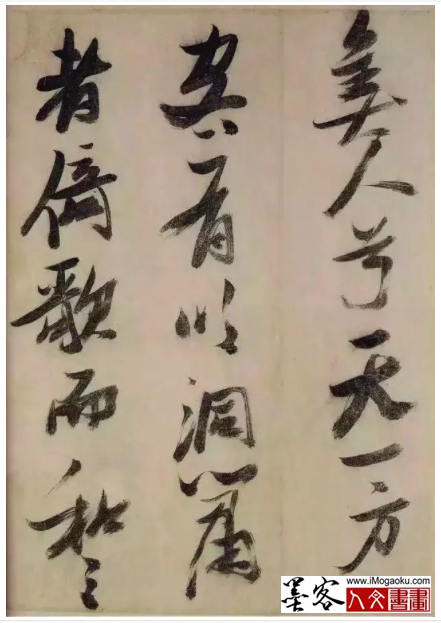 美人兮天一方
客有吹洞簫
者倚歌而和之
www.iMogaoku.com
墨客 人文書畫